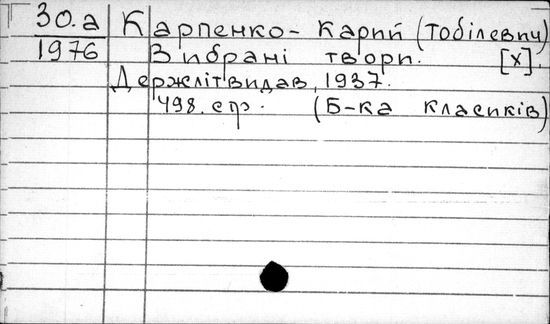 30.а Карпенко-Карий (Тобілевич)
1976 Вибрані твори. [X].
Держлітвидав, 1937.
498. стр. (Б-ка класиків)